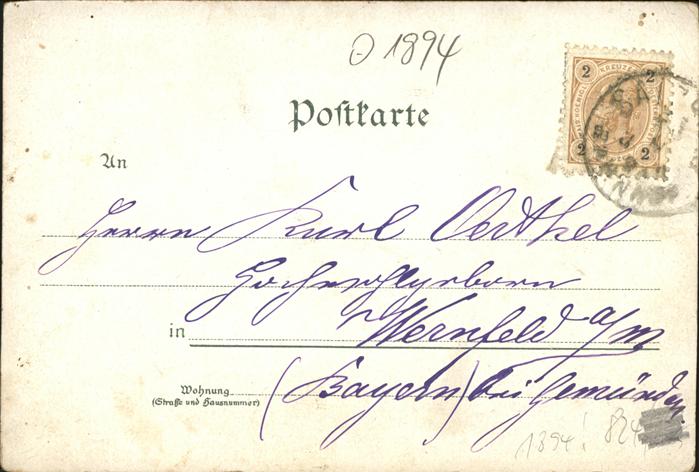 O 1894
2 KREUZER 2
2 2
Postkarte
An
Herrn Karl Oerthel
Hochwohlgeborn
in Wernfeld a/M
Wohnung
(Straße und Hausnummer)
(Bayern) bei Gemünden.
1894! 824